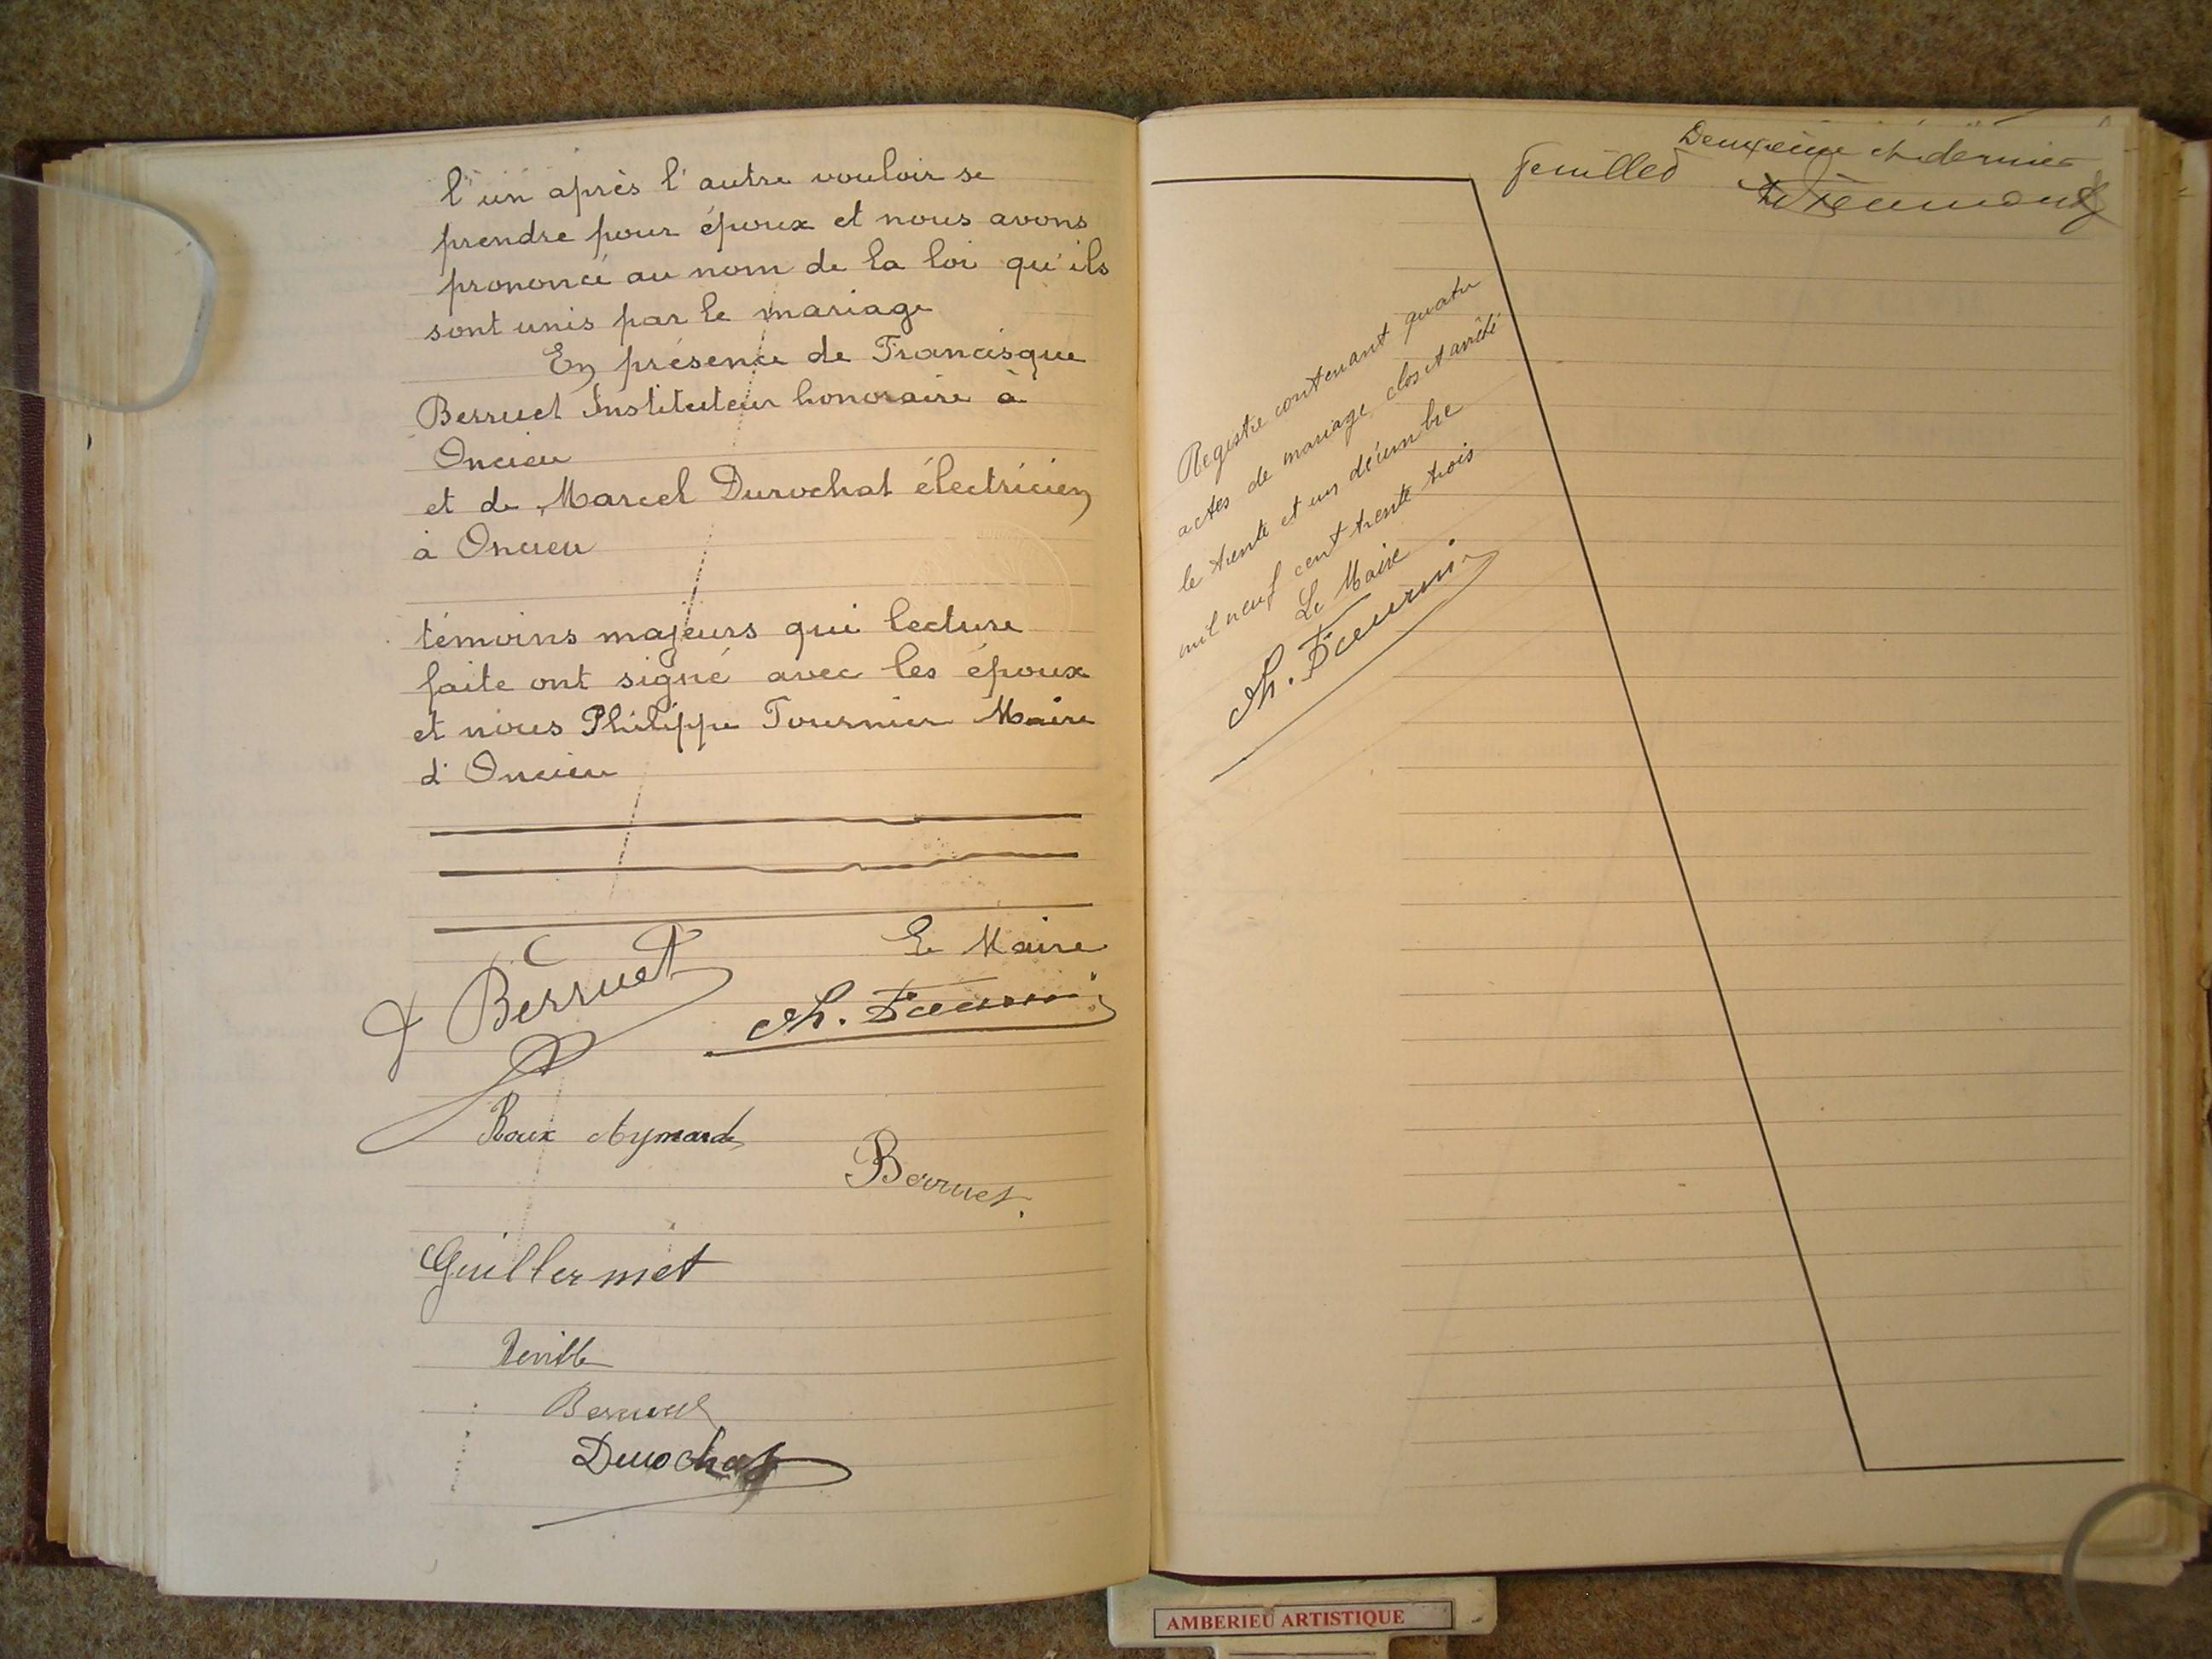 l'un après l'autre vouloir se
prendre pour époux et nous avons
prononcé au nom de la loi qu'ils
sont unis par le mariage
En présence de Francisque
Berruet Instituteur honoraire à
Oncieu
et de Marcel Durochat électricien
à Oncieu
témoins majeurs qui lecture
faite ont signé avec les époux
et nous Philippe Tournier Maire
d'Oncieu
Le Maire
Berruet
Ph. Tournier
Roux Aymard
Berruet.
Guillermet
Berruet
Durochat
Deuxième et dernier
feuillet
Registre contenant quatre
actes de mariage, clos et arrêté
le trente et un décembre
mil neuf cent trente trois
Le Maire
Ph. Tournier
AMBERIEU ARTISTIQUE